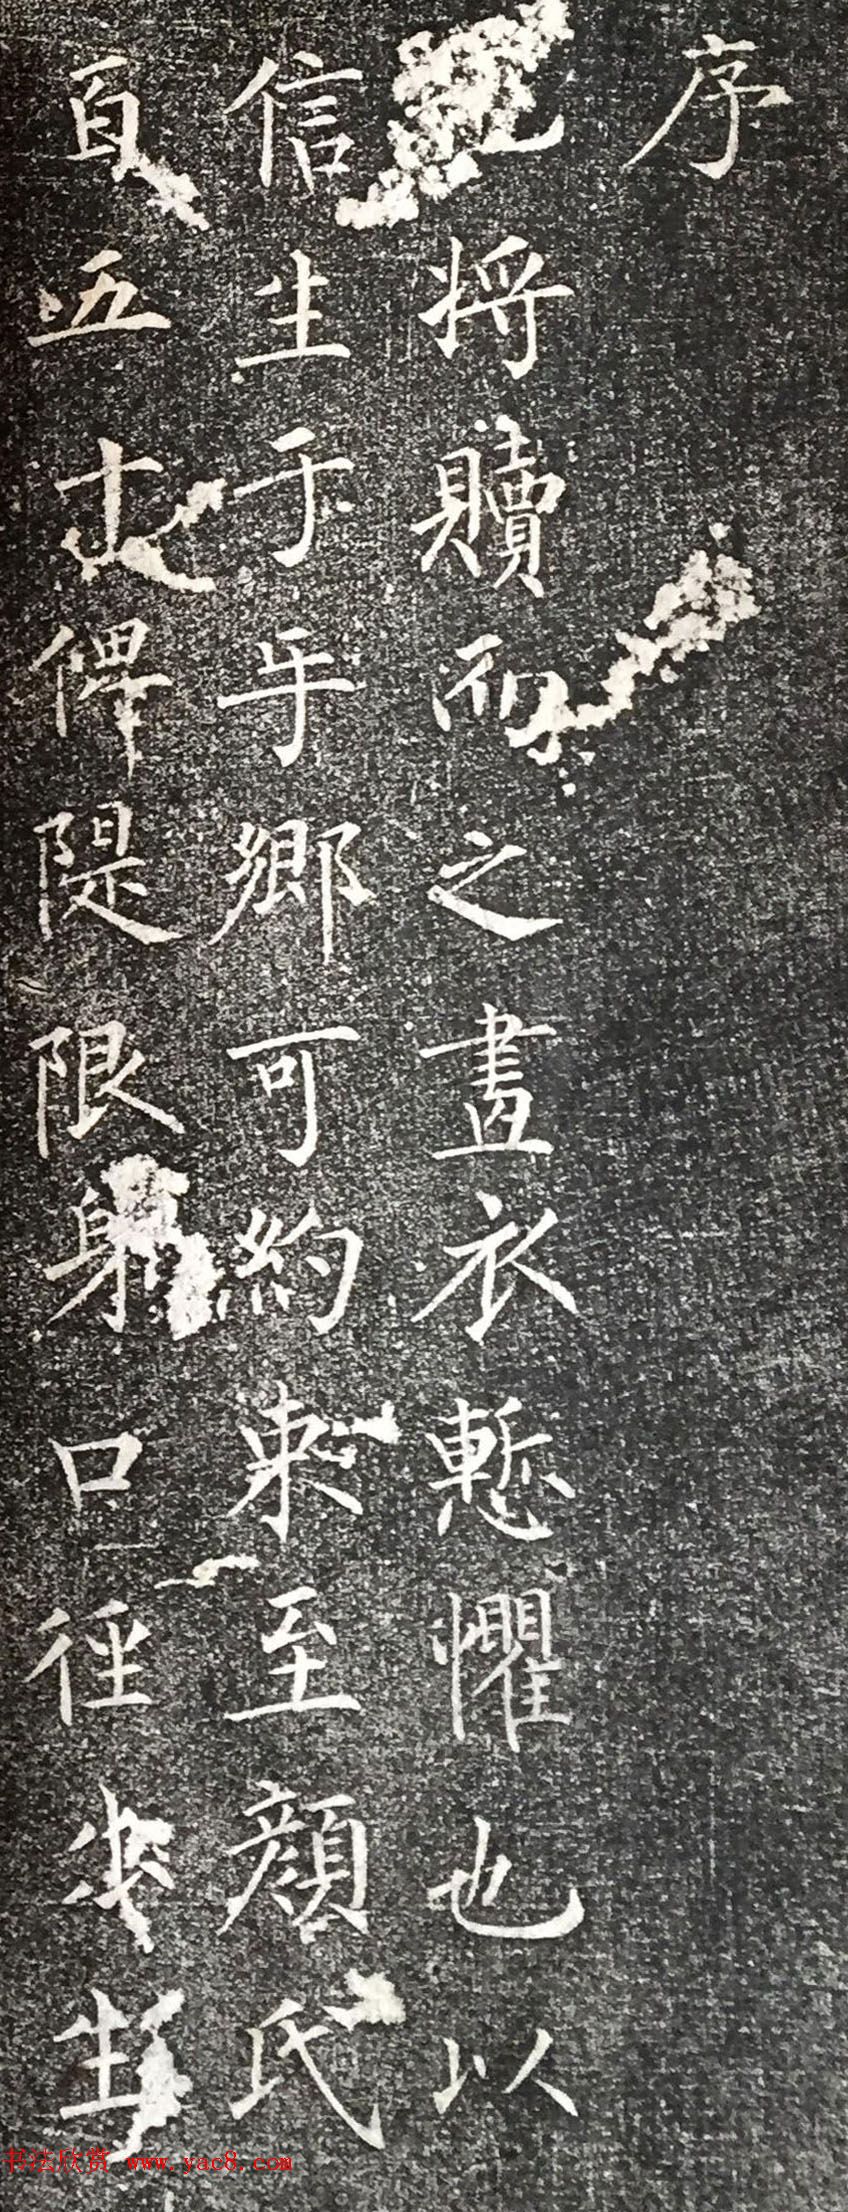 序
將贖而之畫衣慙懼也以
信生于乎鄉可約束至顔氏
百五俾隄限躬口徑步生
书法欣赏 www.yac8.com